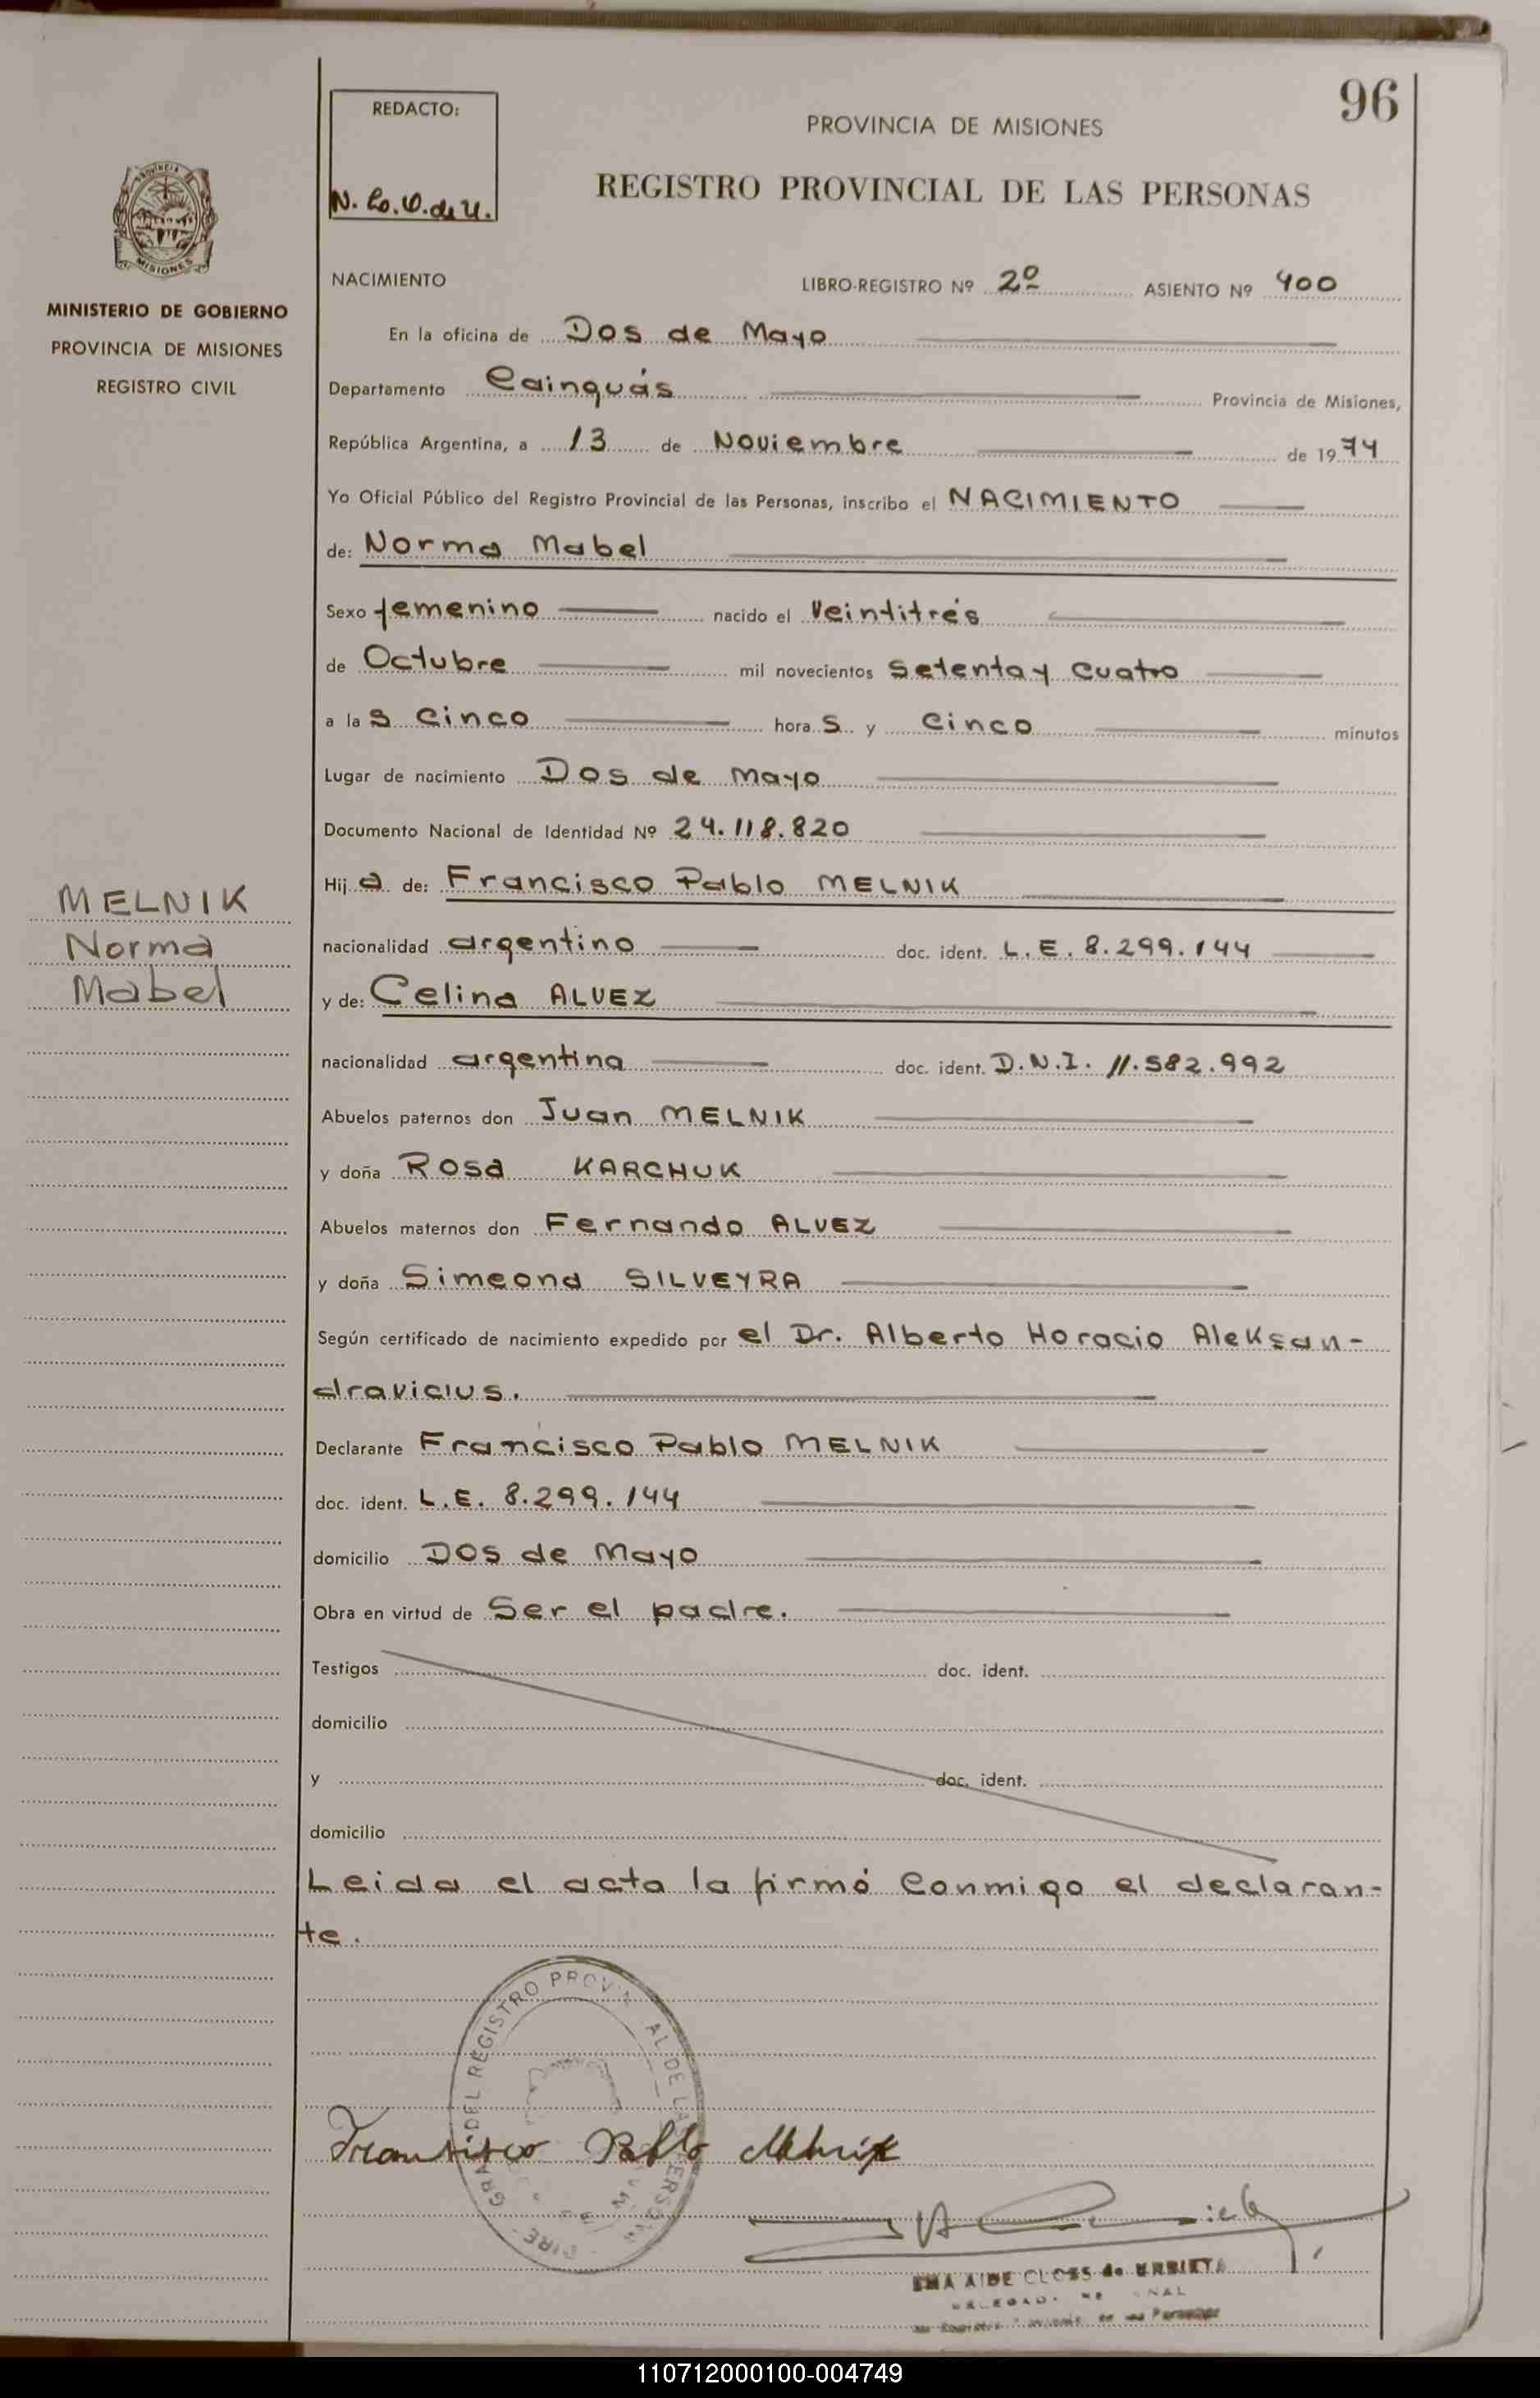 96
REDACTO:
PROVINCIA DE MISIONES
REGISTRO PROVINCIAL DE LAS PERSONAS
PROVINCIA DE
MISIONES
MINISTERIO DE GOBIERNO
PROVINCIA DE MISIONES
REGISTRO CIVIL
NACIMIENTO LIBRO-REGISTRO Nº 2º ASIENTO Nº 400
En la oficina de Dos de Mayo
Departamento Cainguás Provincia de Misiones,
República Argentina, a 13 de Noviembre de 1974
Yo Oficial Público del Registro Provincial de las Personas, inscribo el NACIMIENTO
de: Norma Mabel
Sexo femenino nacido el Veintitrés
de Octubre mil novecientos Setenta y Cuatro
a las Cinco horas y Cinco minutos
Lugar de nacimiento Dos de Mayo
Documento Nacional de Identidad Nº 24.118.820
Hija de: Francisco Pablo MELNIK
MELNIK
Norma
Mabel
nacionalidad argentino doc. ident. L.E. 8.299.144
y de: Celina ALVEZ
nacionalidad argentina doc. ident. D.N.I. 11.582.992
Abuelos paternos don Juan MELNIK
y doña Rosa KARCHUK
Abuelos maternos don Fernando ALVEZ
y doña Simeona SILVEYRA
Según certificado de nacimiento expedido por el Dr. Alberto Horacio Aleksan-
dravicius.
Declarante Francisco Pablo MELNIK
doc. ident. L.E. 8.299.144
domicilio Dos de Mayo
Obra en virtud de Ser el padre.
Testigos doc. ident.
domicilio
y doc. ident.
domicilio
Leida el acta la firmó Conmigo el declaran-
te.
DEL REGISTRO PROVIN AL DE LA
Francisco Pablo Melnik
AIDE CLOSS de URBIETA
110712000100-004749